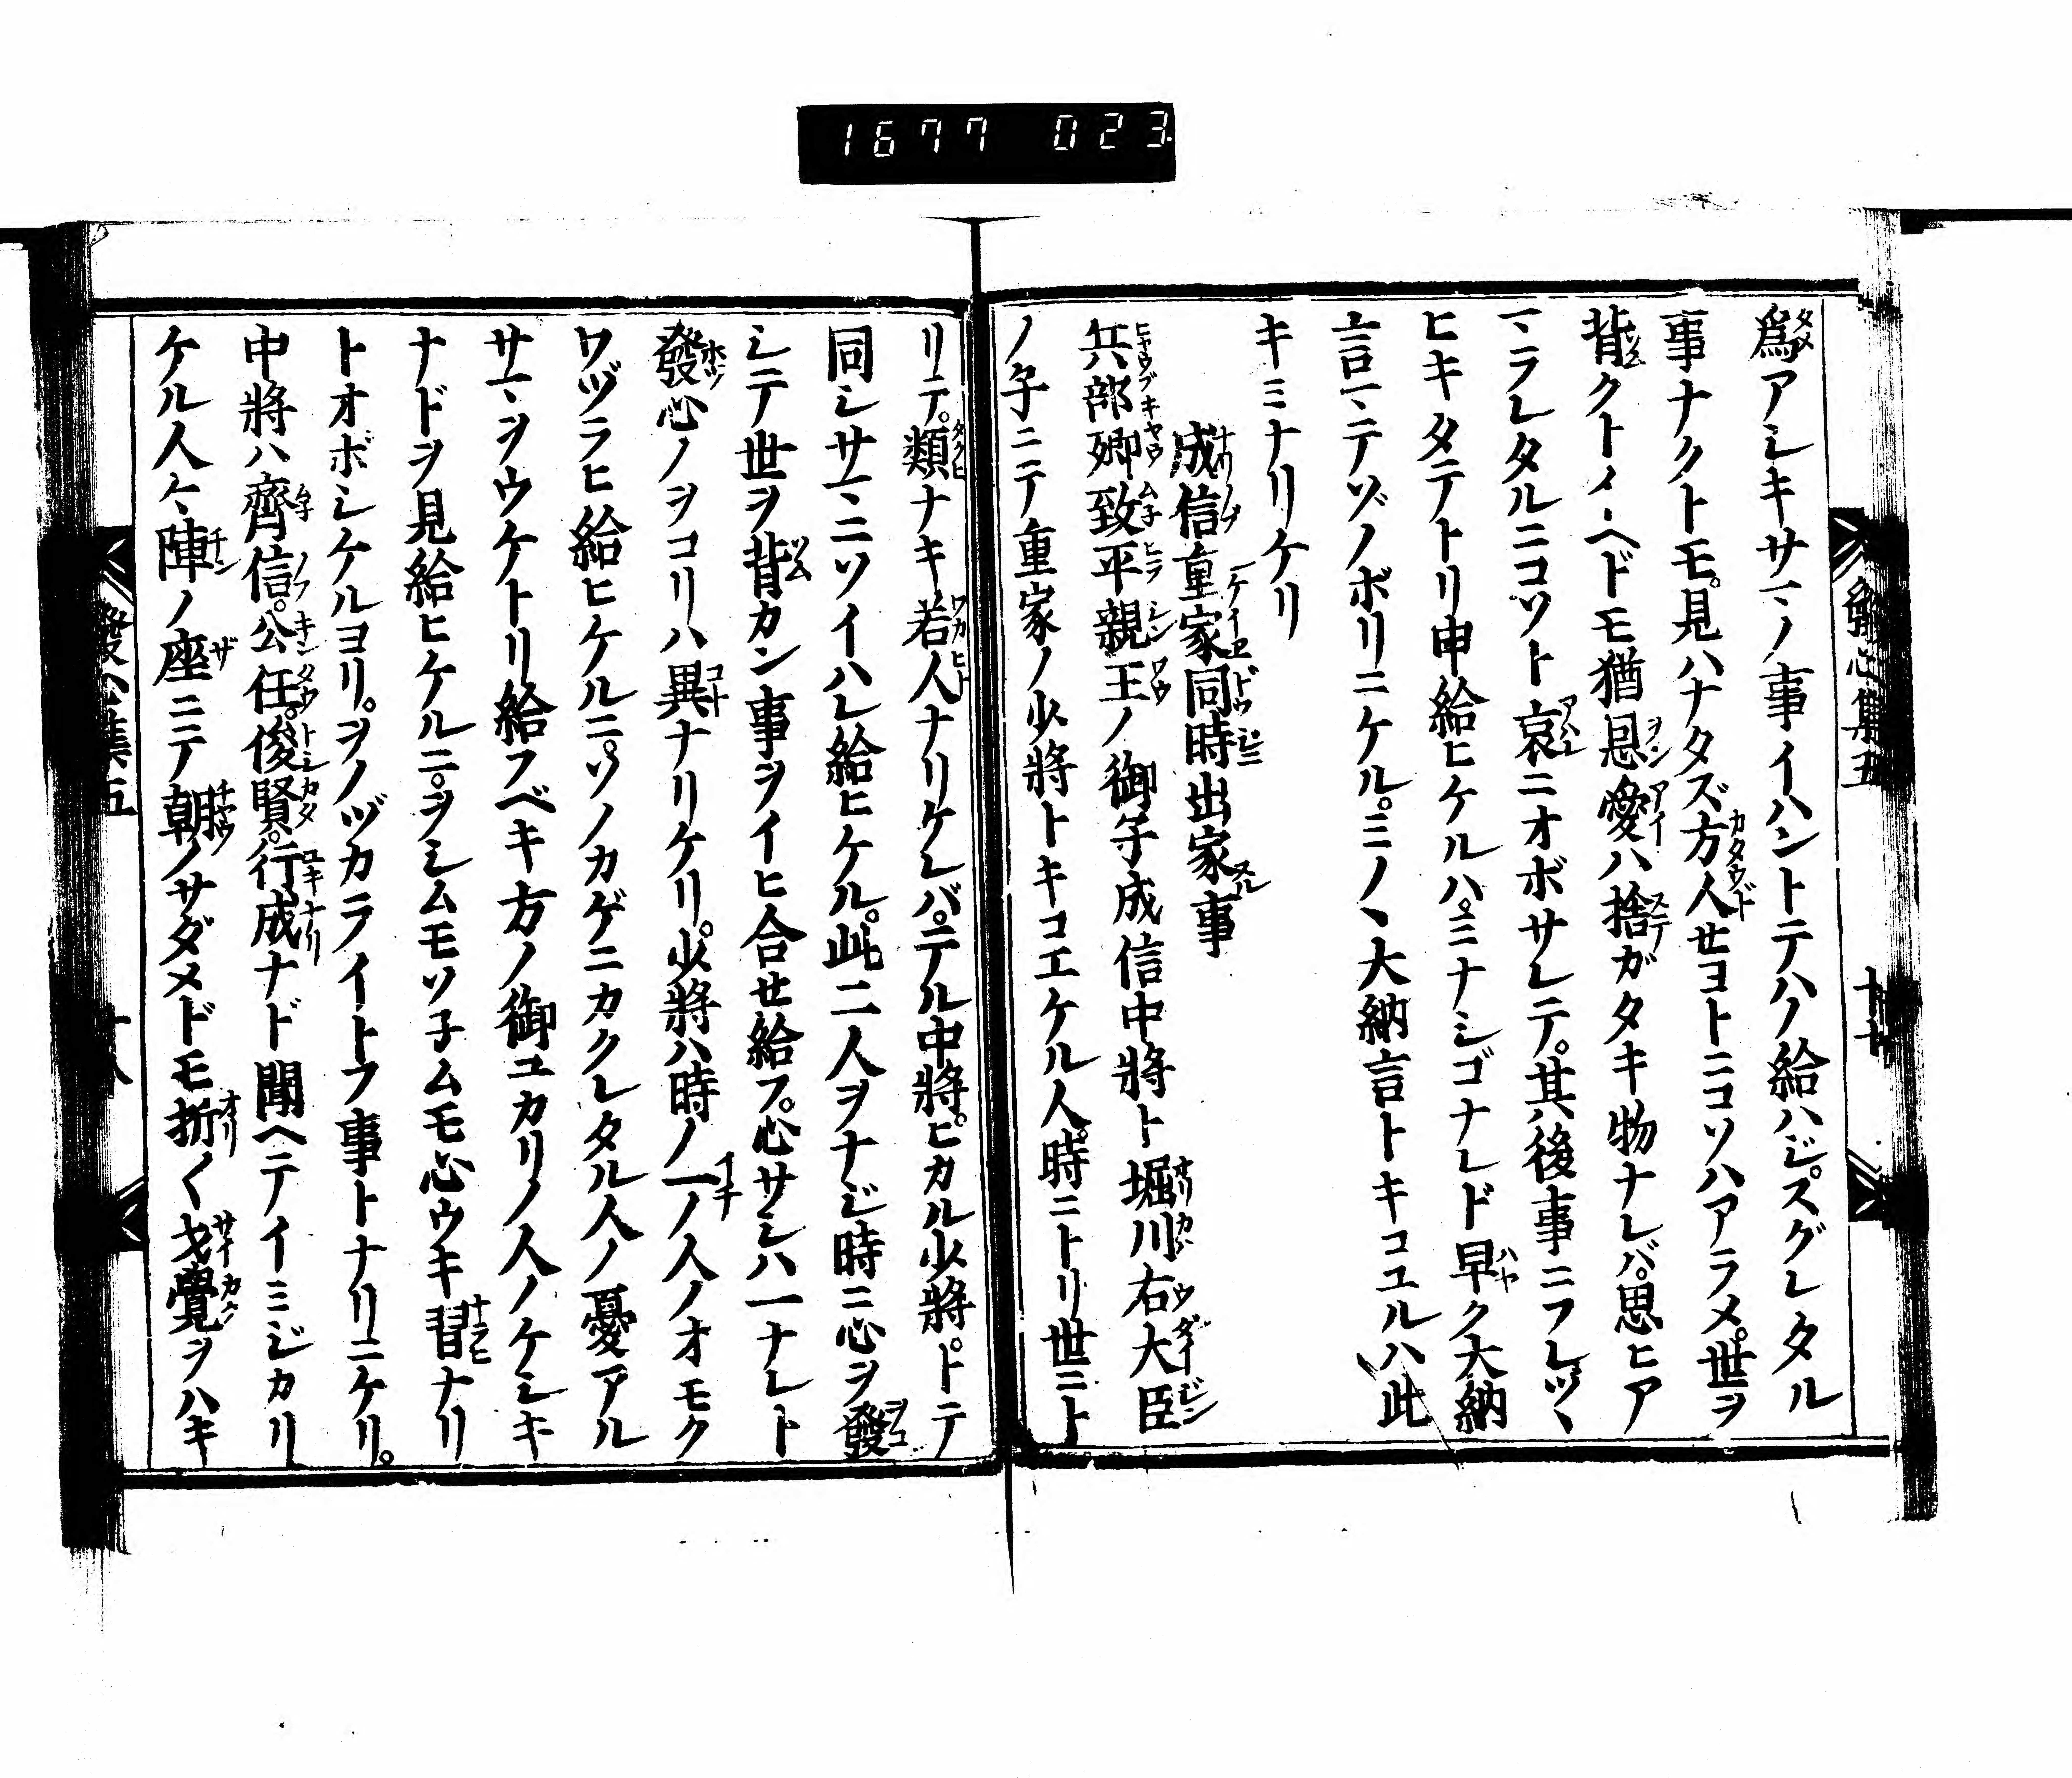 1677 023
發心集五
十七
爲アシキサマノ事イハントテハノ給ハジ。スグレタル
事ナクトモ。見ハナタズ方人セヨトニコソハアラメ。世ヲ
背クトイヘドモ猶恩愛ハ捨ガタキ物ナレバ。思ヒア
マラレタルニコソト哀ニオボサレテ。其後事ニフレツヽ
ヒキタテトリ申給ヒケルハ。ミナシゴナレド早ク大納
言マテゾノボリニケル。ミノヽ大納言トキコユルハ此
キミナリケリ
成信重家同時出家事
兵部卿致平親王ノ御子成信中將ト堀川右大臣
ノ子ニテ重家ノ少將トキコエケル人。時ニトリ世ニト
リテ。類ナキ若人ナリケレバ。テル中將。ヒカル少將。トテ
同シサマニソイハレ給ヒケル。此二人ヲナジ時ニ心ヲ發
シテ世ヲ背カン事ヲイヒ合セ給フ。心サシハ一ナレト
發心ノヲコリハ異ナリケリ。少將ハ時ノ一ノ人ノオモク
ワヅラヒ給ヒケルニ。ソノカゲニカクレタル人ノ憂アル
サマヲウケトリ給フベキ方ノ御ユカリノ人ノケシキ
ナドヲ見給ヒケルニ。ヲシムモソ子ムモ心ウキ習ナリ
トオボシケルヨリ。ヲノヅカライトフ事トナリニケリ。
中將ハ齊信。公任。俊賢。行成ナド聞ヘテイミジカリ
ケル人々陣ノ座ニテ朝ノサダメドモ折〱才覺ヲハキ
發心集五
十八